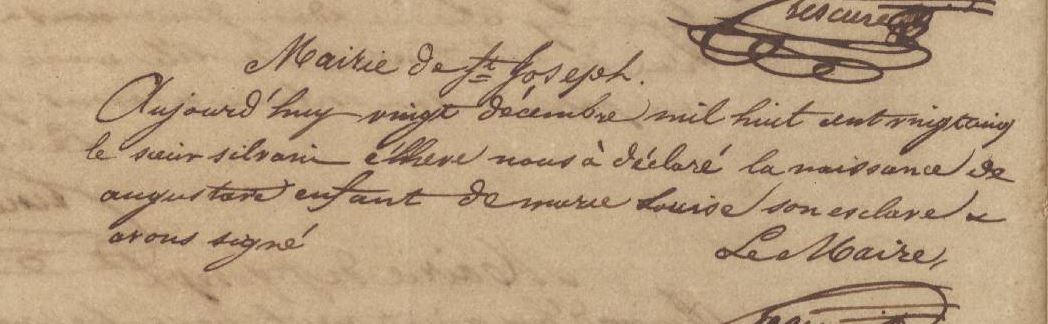 Lescure
Mairie de St Joseph.
Aujourd'huy vingt décembre mil huit cent vingt cinq
le sieur silvain éthève nous à déclaré la naissance de
enfant de marie Louise son esclave &
avons signé
Le Maire,